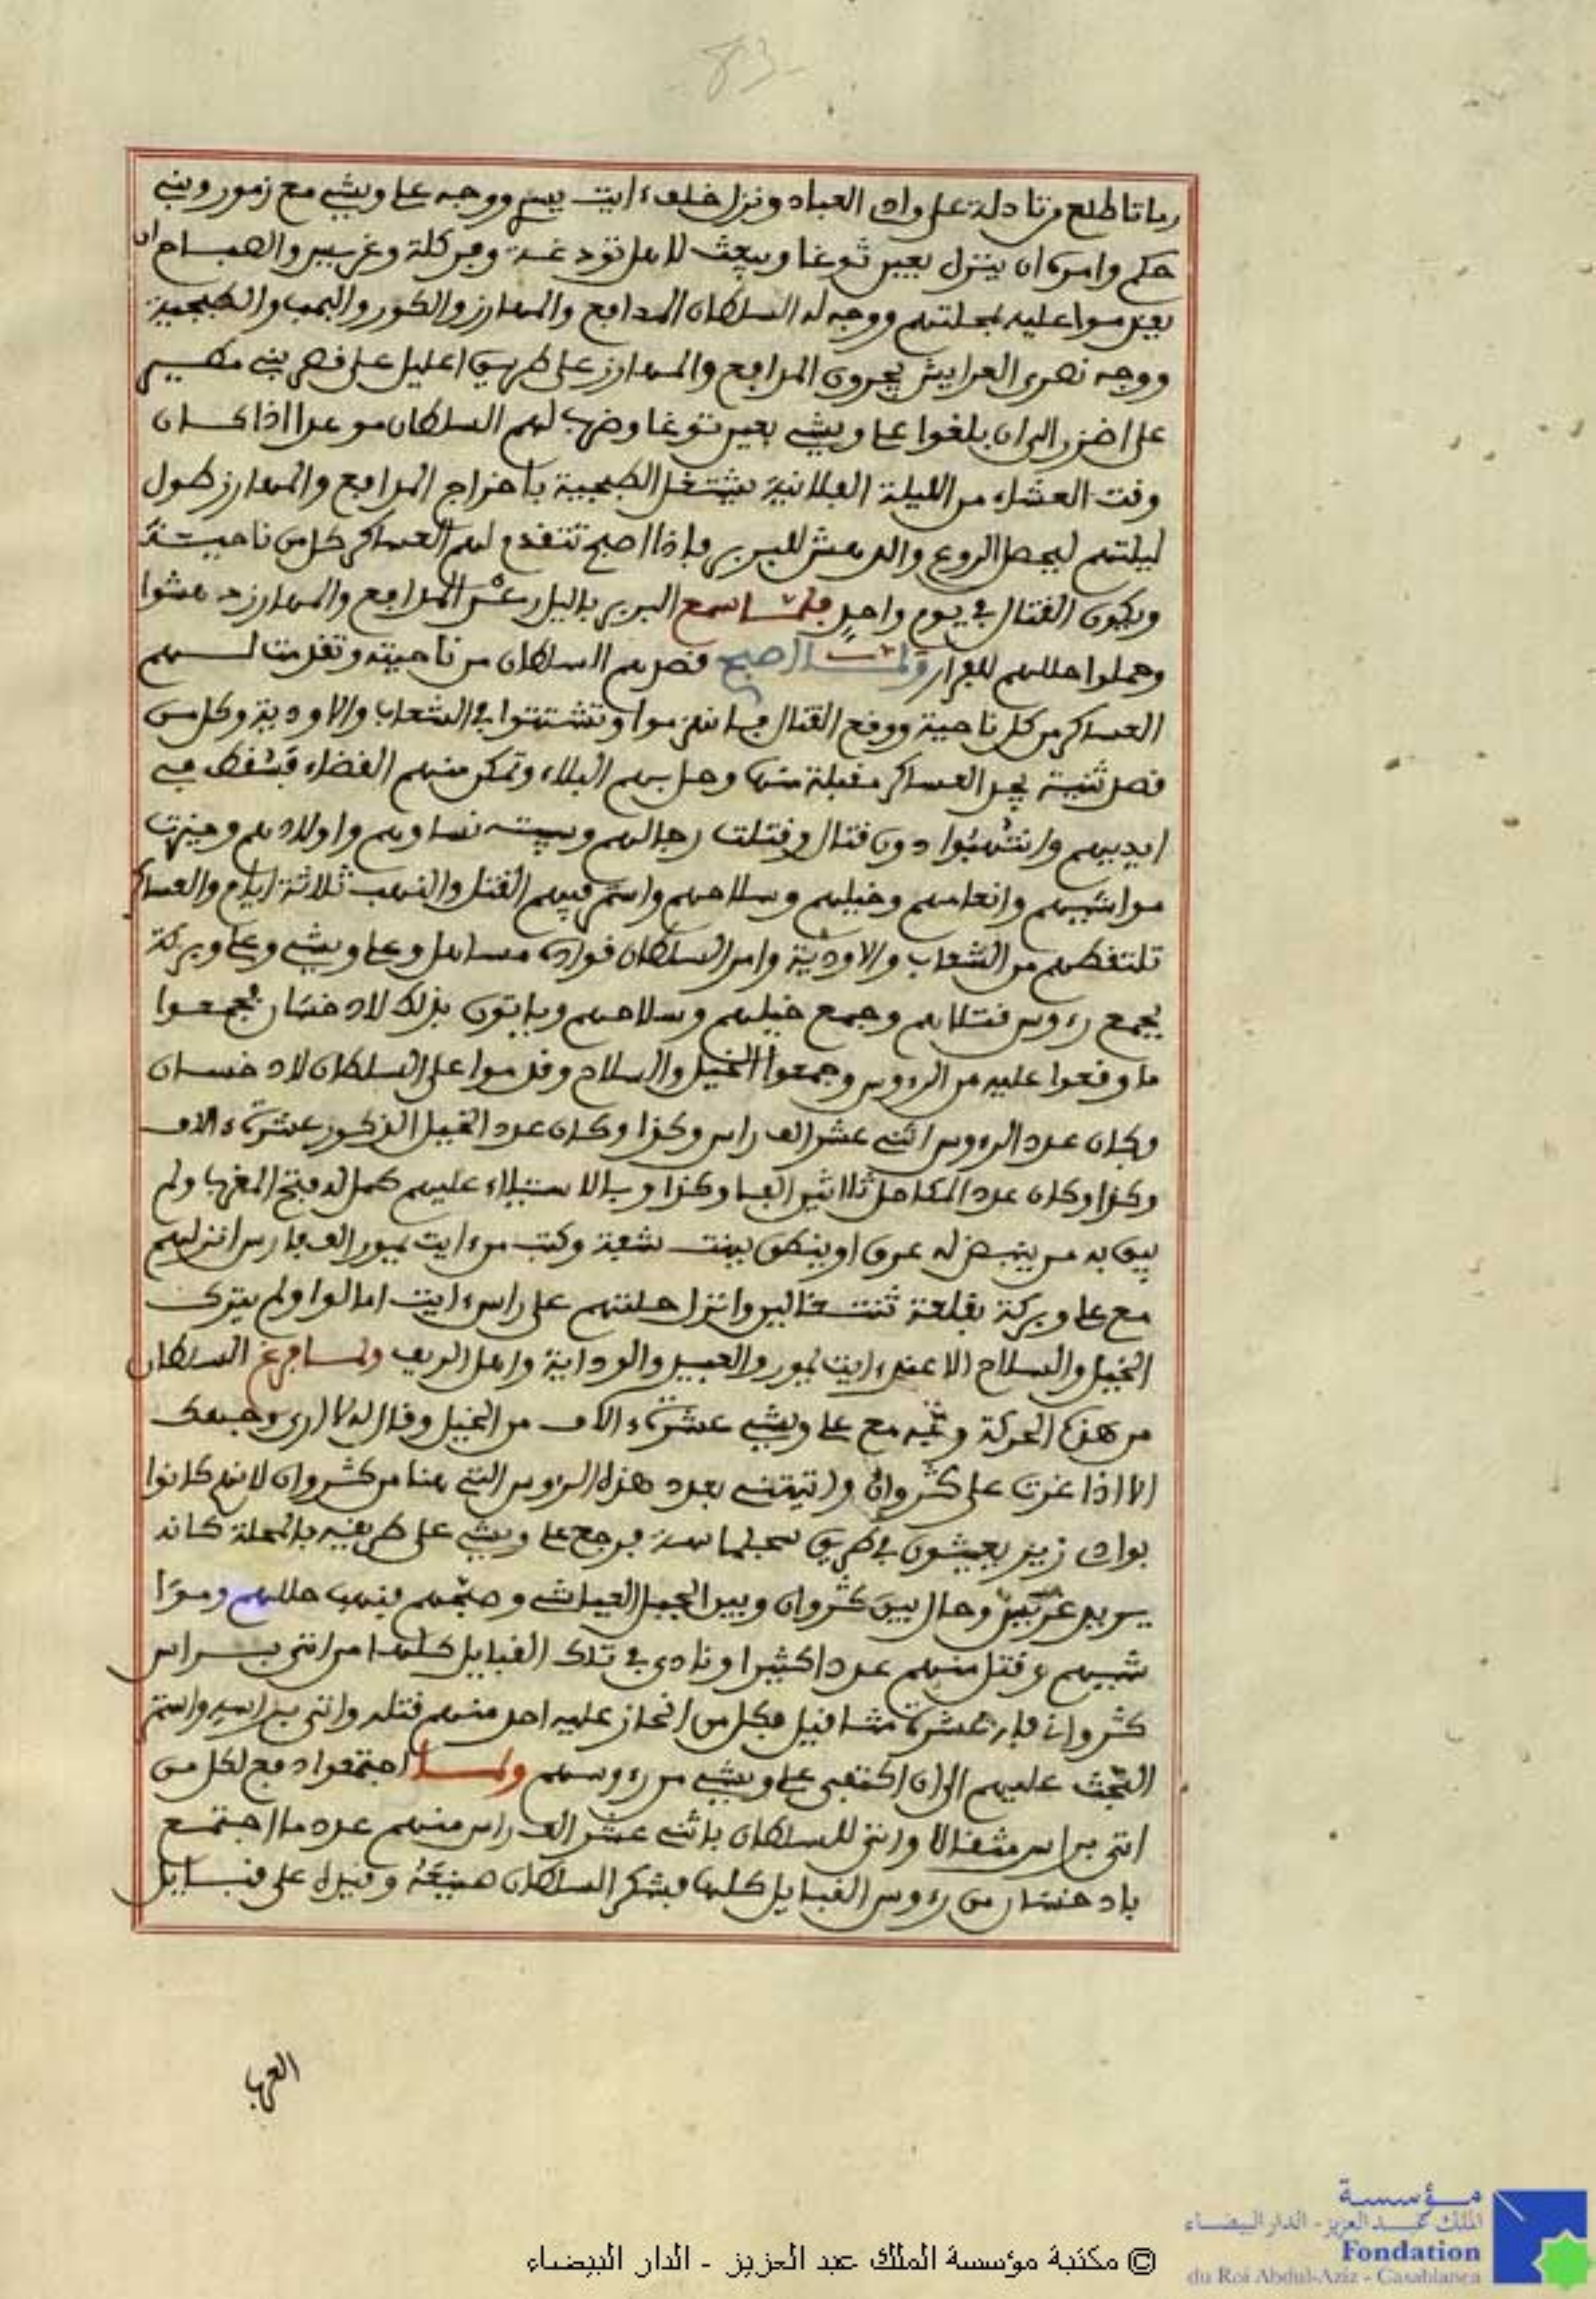 83
رماتا طلع من تادلة على واد العبيد ونزل خلف ءايت يسري ووجه على ويشي مع زمور وبني
حكم وامره ان ينزل بعين شوعا ويبعث لاهل تودغة وفركلة وغريس والصباح ان
يقدموا عليه بمحلتهم ووجه له السلطان المدافع والمهارز والكور والبمب والطبجية
ووجه نصرى العرايش يجرون المدافع والمهارز على طريق اعليل على قصر بني مطير
على اضزر الى ان بلغوا على ويشي بعين شوعا وضرب لهم السلطان موعدا اذا كان
وقت العشاء من الليلة الفلانية يشتغل الطبجية باخراج المدافع والمهارز طول
ليلتهم ليحصل الروع والدهش للبربر فإذا اصبح تتقدم لهم العساكر كل من ناحيته
ويكون القتال في يوم واحد فلما سمع البربر بالليل رعد المدافع والمهارز دهشوا
وحملوا حللهم للفرار ولما اصبح قصدهم السلطان من ناحيته وتقدمت لهم
العساكر من كل ناحية ووقع القتال فانهزموا وتشتتوا في الشعاب والاودية وكل من
قصد ثنية يجد العساكر مقبلة منها وحل بهم البلاء وتمكن منهم القضاء فسقط في
ايديهم وانتهبوا دون قتال وقتلت رجالهم وسبيت نساوهم واولادهم وحيزت
مواشيهم وانعامهم وخيلهم وسلاحهم واستمر فيهم القتل والنهب ثلاثة ايام والعساكر
تلتقطهم من الشعاب والاودية وامر السلطان قواده مساهل وعلى ويشي وعلى وبركة
بجمع رءوس قتلاهم وجمع خيلهم وسلاحهم وياتون بذلك لادخسان فجمعوا
ما وقعوا عليه من الرءوس وجمعوا الخيل والسلاح وقدموا على السلطان لادخسان
وكان عدد الرءوس اثنى عشر الف راس وكذا وكان عدد الخيل المذكور عشرة ءالاف
وكذا وكان عدد المكاحل ثلاثين الفا وكذا وبالاستيلاء عليهم كمل له فتح المغرب ولم
يبق به من ينبض له عرق او ينطق ببنت شفة وكتب من ءايت يمور الف فارس انزلهم
مع على وبركة بقلعة تنتغالين وانزل حلتهم على راس ءايت امالوا ولم يترك
الخيل والسلاح الا عند ءايت يمور والعبيد والوداية واهل الريف ولما فرغ السلطان
من هذه الحركة وجه مع على ويشي عشرة ءالاف من الخيل وقال له لا ارى وجهك
الا اذا غرت على كشروان واتيتني بعدد هذه الرءوس التي هنا من كشروان لانهم كانوا
بواد زيز يعيثون في طريق سجلماسة فرجع على ويشي على طريقه بالمحلة كانه
يريد غريس وحال بين كشروان وبين الجبل العياشي وصبحهم فنهب حللهم وموا
شيهم وقتل منهم عددا كثيرا ونادى في تلك القبايل كلها من اتى براس
كشرواني فله عشرة مثاقيل فكل من انحاز عليه احد منهم قتله واتى براسه واستمر
البحث عليهم الى ان اكتفى على ويشي من رءوسهم ولما اجتمعوا دفع لكل من
اتى براس مثقالا واتى للسلطان باثنى عشر الف راس منهم عدد ما اجتمع
بادخسان من رءوس القبايل كلها فشكر السلطان صنيعه وقيده على قبايل
العرب
مؤسسة
الملك عبد العزيز - الدار البيضاء
Fondation
du Roi Abdul-Aziz - Casablanca
© مكتبة مؤسسة الملك عبد العزيز - الدار البيضاء